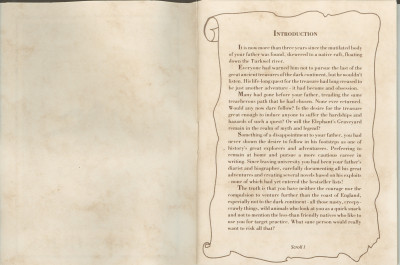 INTRODUCTION
It is now more than three years since the mutilated body
of your father was found, skewered to a native raft, floating
down the Turkwel river.
Everyone had warned him not to pursue the last of the
great ancient treasures of the dark continent, but he wouldn't
listen. His life long quest for the treasure had long ceased to
be just another adventure - it had become and obsession.
Many had gone before your father, treading the same
treacherous path that he had chosen. None ever returned.
Would any now dare follow? Is the desire for the treasure
great enough to induce anyone to suffer the hardships and
hazards of such a quest? Or will the Elephant's Graveyard
remain in the realm of myth and legend?
Something of a disappointment to your father, you had
never shown the desire to follow in his footsteps as one of
history's great explorers and adventurers. Preferring to
remain at home and pursue a more cautious career in
writing. Since leaving university you had been your father's
diarist and biographer, carefully documenting all his great
adventures and creating several novels based on his exploits
- none of which had yet entered the bestseller lists!
The truth is that you have neither the courage nor the
compulsion to venture further than the coast of England,
especially not to the dark continent - all those nasty, creepy-
crawly things, wild animals who look at you as a quick snack
and not to mention the less than friendly natives who like to
use you for target practice. What sane person would really
want to risk all that?
Scroll 1